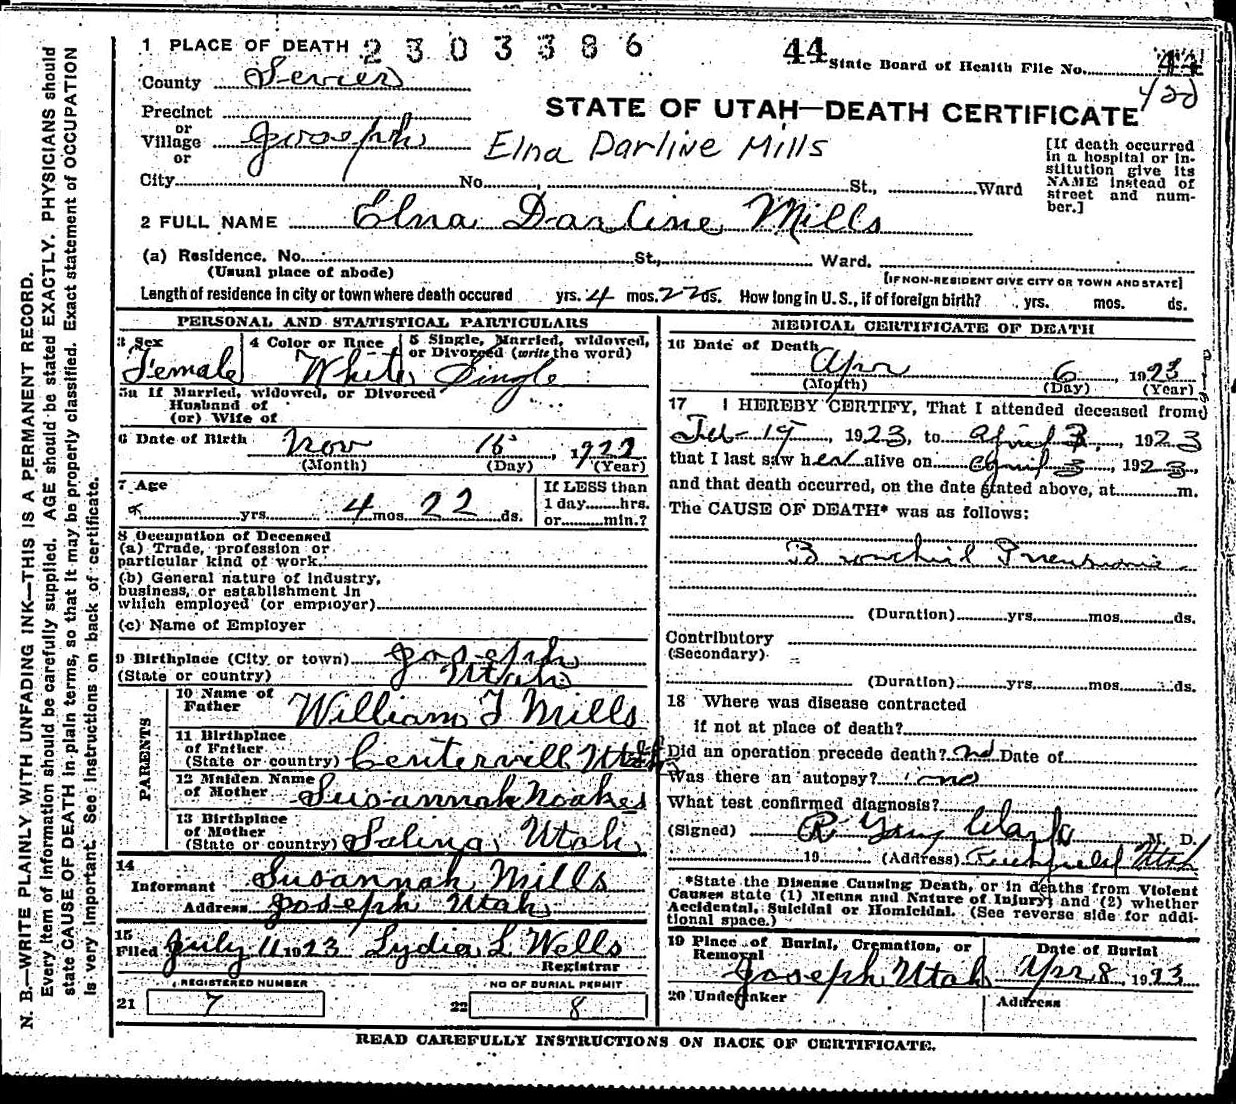 1 PLACE OF DEATH 2303386 44 State Board of Health File No. 44
County Sevier 420
Precinct STATE OF UTAH—DEATH CERTIFICATE
or
Village Joseph Elna Darline Mills
or
City No. St., Ward
[If death occurred
in a hospital or in-
stitution give its
NAME instead of
street and num-
ber.]
2 FULL NAME Elna Darline Mills
(a) Residence. No. St., Ward.
(Usual place of abode) [IF NON-RESIDENT GIVE CITY OR TOWN AND STATE]
Length of residence in city or town where death occured yrs. 4 mos. 22 ds. How long in U. S., if of foreign birth? yrs. mos. ds.
PERSONAL AND STATISTICAL PARTICULARS
3 Sex 4 Color or Race 5 Single, Married, widowed,
or Divorced (write the word)
Female White Single
5a If Married, widowed, or Divorced
Husband of
(or) Wife of
6 Date of Birth Nov 15, 1922
(Month) (Day) (Year)
7 Age If LESS than
1 day hrs.
yrs. 4 mos. 22 ds. or min.?
8 Occupation of Deceased
(a) Trade, profession or
particular kind of work
(b) General nature of industry,
business, or establishment in
which employed (or employer)
(c) Name of Employer
9 Birthplace (City or town) Joseph
(State or country) Utah
PARENTS
10 Name of
Father William J Mills
11 Birthplace
of Father
(State or country) Centervill Utah
12 Maiden Name
of Mother Susannah Noakes
13 Birthplace
of Mother
(State or country) Salina, Utah
14
Informant Susannah Mills
Address Joseph Utah
15
Filed July 11 1923 Lydia L. Wells
Registrar
REGISTERED NUMBER NO OF BURIAL PERMIT
21 7 22 8
MEDICAL CERTIFICATE OF DEATH
16 Date of Death
Apr 6, 1923
(Month) (Day) (Year)
17 I HEREBY CERTIFY, That I attended deceased from
Feb 19, 1923, to April 3, 1923
that I last saw her alive on April 3, 1923,
and that death occurred, on the date stated above, at m.
The CAUSE OF DEATH* was as follows:
Bronchial Pneumonia
(Duration) yrs. mos. ds.
Contributory
(Secondary)
(Duration) yrs. mos. ds.
18 Where was disease contracted
if not at place of death?
Did an operation precede death? no Date of
Was there an autopsy? no
What test confirmed diagnosis?
(Signed) R Young Clark M. D.
19 (Address) Richfield Utah
*State the Disease Causing Death, or in deaths from Violent
Causes state (1) Means and Nature of Injury; and (2) whether
Accidental, Suicidal or Homicidal. (See reverse side for addi-
tional space.)
19 Place of Burial, Cremation, or
Removal Date of Burial
Joseph Utah Apr 8, 1923
20 Undertaker Address
READ CAREFULLY INSTRUCTIONS ON BACK OF CERTIFICATE.
N. B.—WRITE PLAINLY WITH UNFADING INK—THIS IS A PERMANENT RECORD.
Every item of information should be carefully supplied. AGE should be stated EXACTLY. PHYSICIANS should
state CAUSE OF DEATH in plain terms, so that it may be properly classified. Exact statement of OCCUPATION
is very important. See instructions on back of certificate.